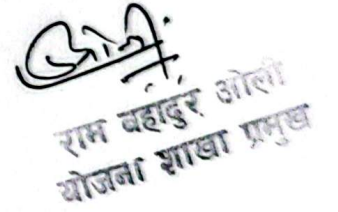 ओली
राम बहादुर ओली
योजना शाखा प्रमुख